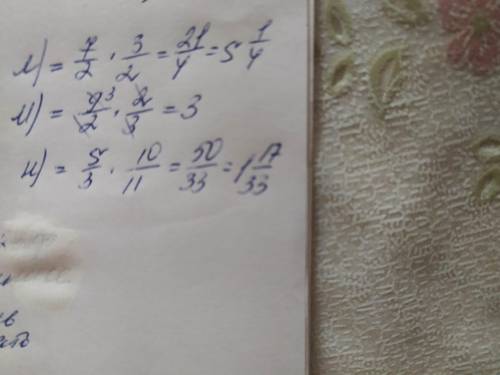 л) = 7/2 · 3/2 = 21/4 = 5 1/4
м) = 9³/2 · 2/3 = 3
н) = 5/3 · 10/11 = 50/33 = 1 17/33